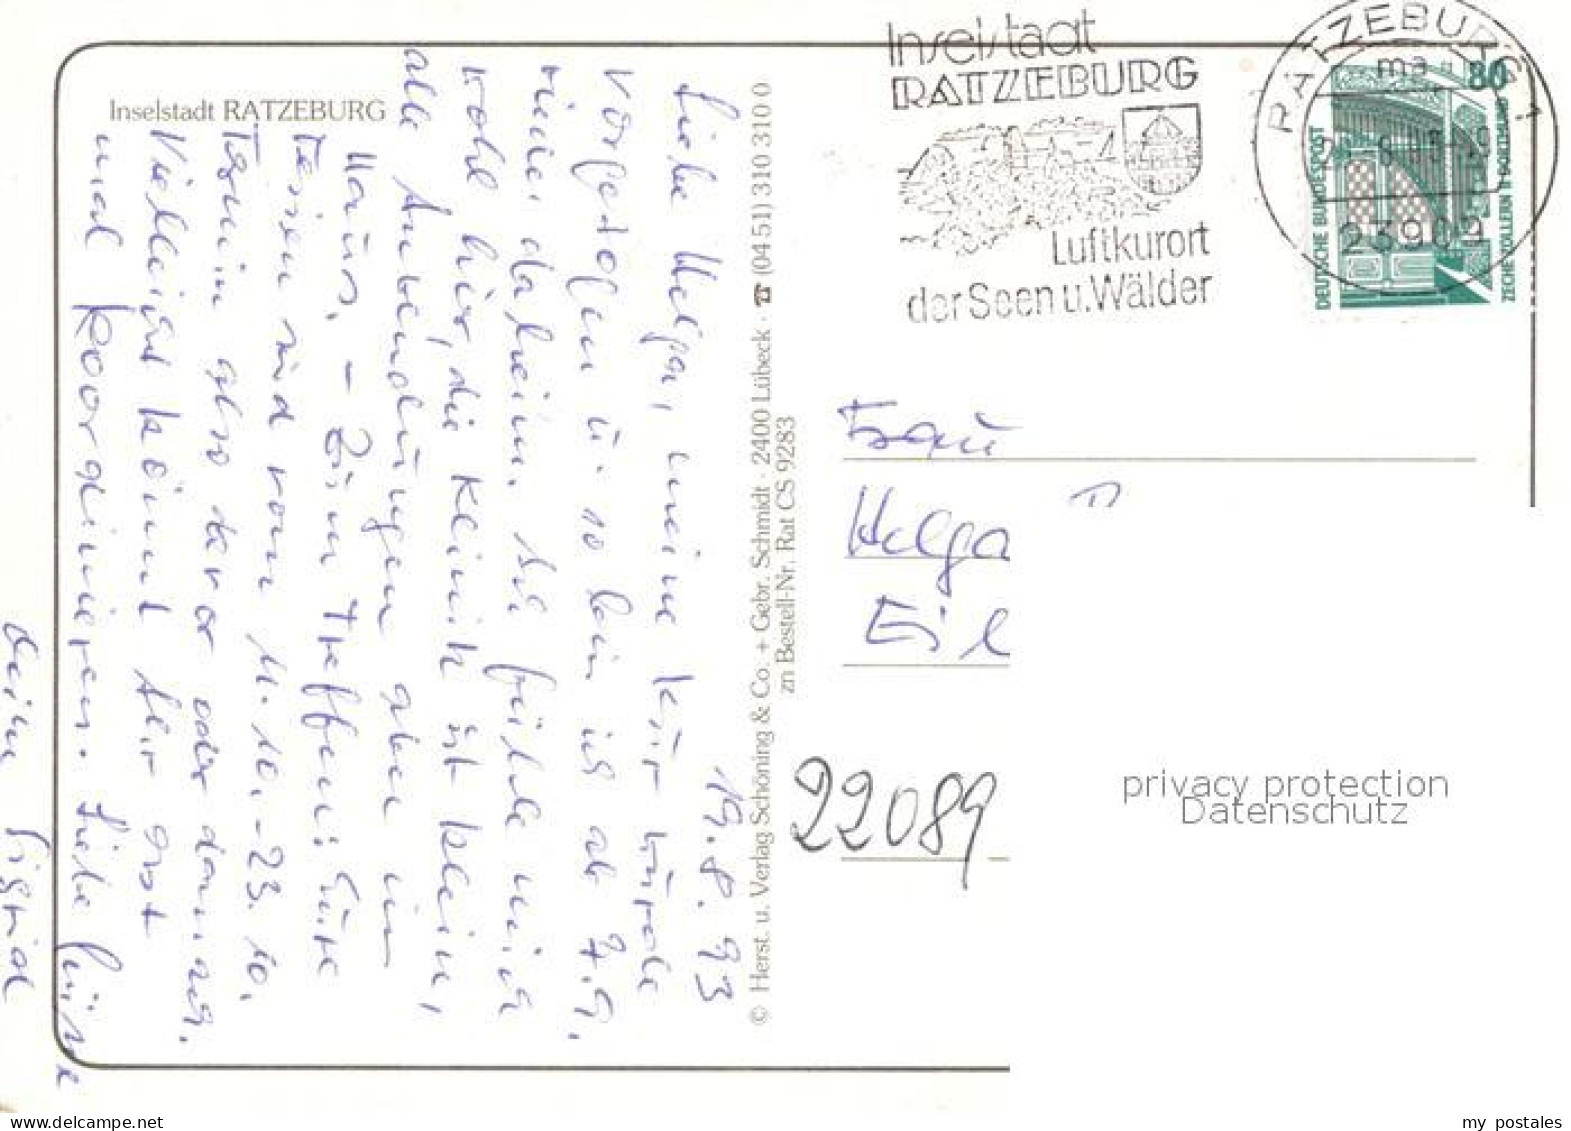 Inselstadt RATZEBURG
19.8.93
Liebe Helga, meine Kur wurde
vorgezogen u. so bin ich ab 7.9.
wieder daheim. Ich fühle mich
wohl hier, die Klinik ist klein,
alle Anwendungen aber im
Haus. – Zum Treffen: Eure
Ferien sind vom 11.10.-23.10.
Termin also davor oder danach.
Vielleicht könnt Ihr erst
mal koordinieren. Liebe Grüsse
deine Sigrid
© Herst. u. Verlag Schöning & Co. + Gebr. Schmidt · 2400 Lübeck · ☎ (04 51) 310 310 0
zn Bestell-Nr. Rat CS 9283
Inselstadt
RATZEBURG
Luftkurort
der Seen u. Wälder
RATZEBURG 1
ma
23909
80
DEUTSCHE BUNDESPOST
ZECHE ZOLLERN II DORTMUND
Frau
Helga
Eil
22089
privacy protection
Datenschutz
my postales